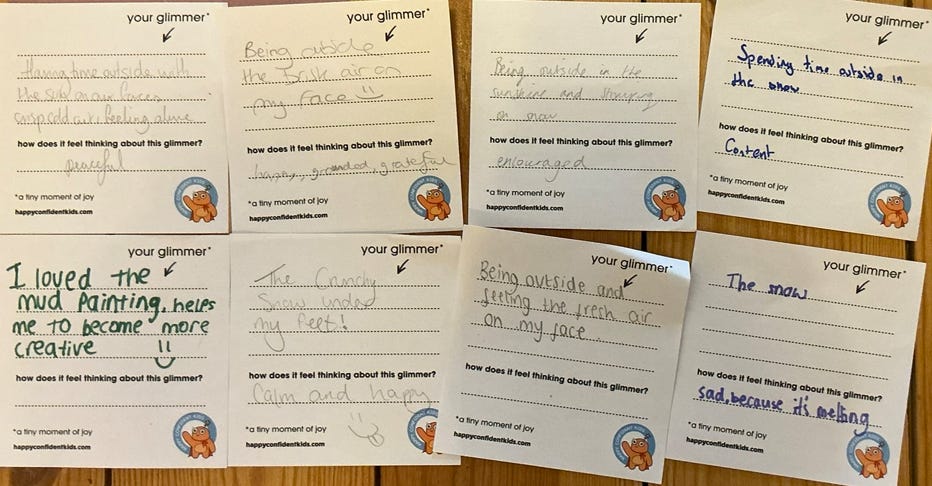 your glimmer*
Having time outside with
the sun on our faces
crisp cold air, feeling alive
how does it feel thinking about this glimmer?
peaceful
*a tiny moment of joy
happyconfidentkids.com
your glimmer*
Being outside
the brisk air on
my face
how does it feel thinking about this glimmer?
happy, grounded, grateful
*a tiny moment of joy
happyconfidentkids.com
your glimmer*
Being outside in the
sunshine and stomping
on snow
how does it feel thinking about this glimmer?
encouraged
*a tiny moment of joy
happyconfidentkids.com
your glimmer*
Spending time outside in
the snow
how does it feel thinking about this glimmer?
Content
*a tiny moment of joy
happyconfidentkids.com
your glimmer*
I loved the
mud painting, helps
me to become more
creative
how does it feel thinking about this glimmer?
*a tiny moment of joy
happyconfidentkids.com
your glimmer*
The Crunchy
Snow under
my feet!
how does it feel thinking about this glimmer?
Calm and happy
*a tiny moment of joy
happyconfidentkids.com
your glimmer*
Being outside and
feeling the fresh air
on my face
how does it feel thinking about this glimmer?
*a tiny moment of joy
happyconfidentkids.com
your glimmer*
The snow
how does it feel thinking about this glimmer?
sad, because it's melting
*a tiny moment of joy
happyconfidentkids.com